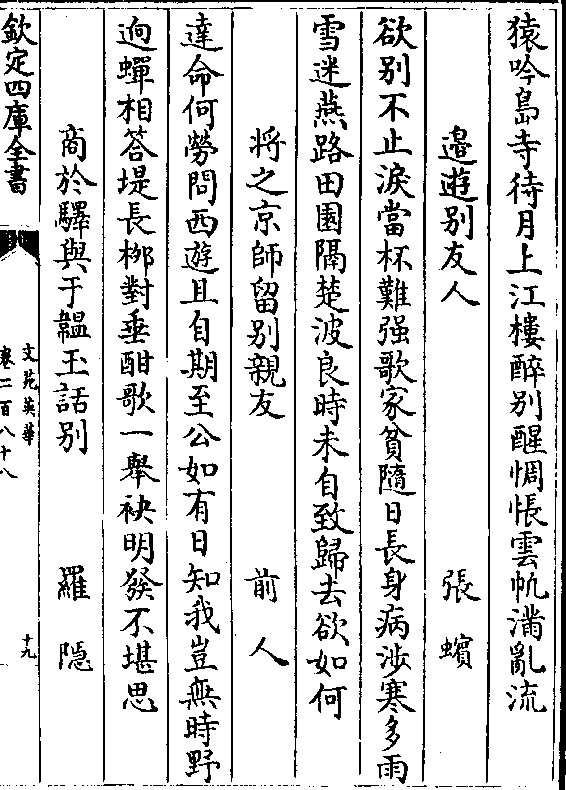 猿吟島寺待月上江樓醉別醒惆悵雲㠶滿亂流
邉遊别友人　張蠙
欲别不止淚當杯難强歌家貧隨日長身病涉寒多雨
雪迷燕路田園隔楚波良時未自致歸去欲如何
將之京師留别親友　前人
達命何勞問西遊且自期至公如有日知我豈無時野
逈蟬相答堤長栁對垂酣歌一舉袂明發不堪思
商於驛與于韞玉話别　羅隱
欽定四庫全書
文苑英華
卷二百八十八
十九